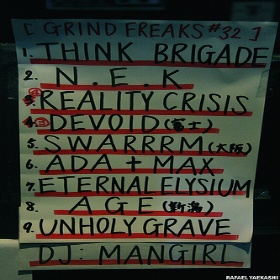 [ GRIND FREAKS #32 ]
1. THINK BRIGADE
2. N.E.K
3. REALITY CRISIS
4. DEVOID (富士)
5. SWARRRM (大阪)
6. ADA + MAX
7. ETERNAL ELYSIUM
8. AGE (新潟)
9. UNHOLY GRAVE
DJ: MANGIRL
RAFAEL YAEKASHI